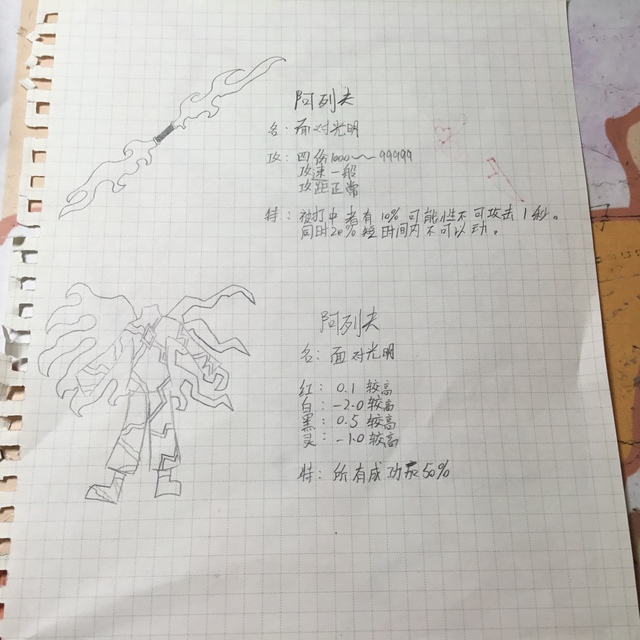 阿列夫
名：面对光明
攻：四伤1000~~99999
攻速一般
攻距正常
特：被打中者有10%可能性不可攻击1秒。
同时20%短时间内不可以动。
阿列夫
名：面对光明
红：0.1 较高
白：-2.0 较高
黑：0.5 较高
灵：-1.0 较高
特：所有成功率50%